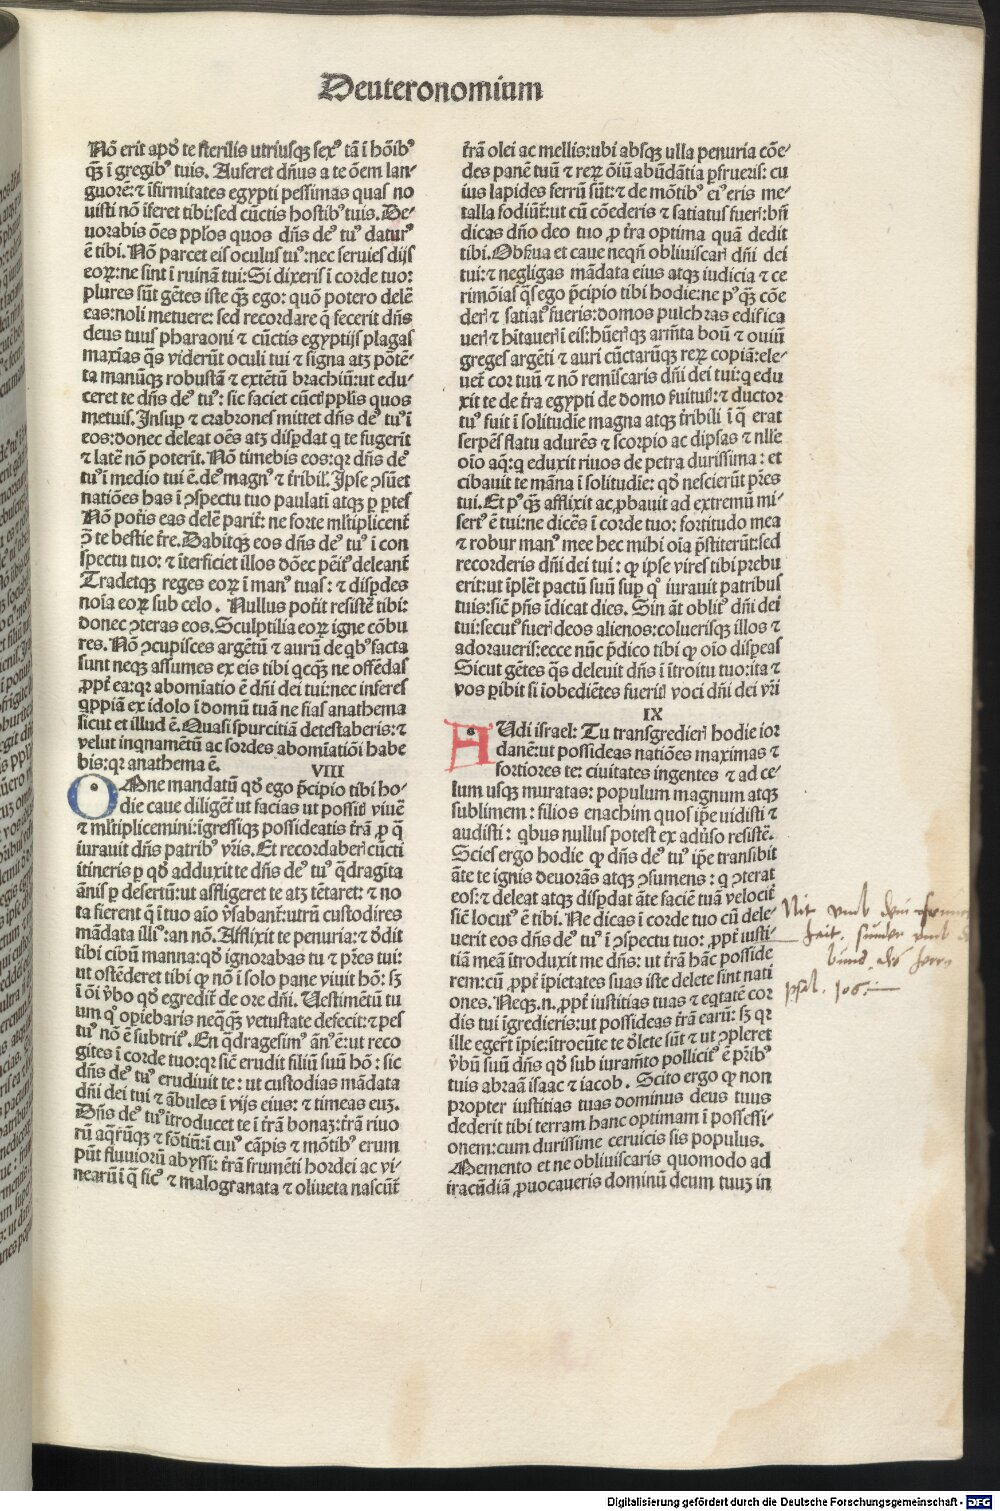 Deuteronomium
Nō erit apđ te sterilis utriusqꝫ sexꝰ tā ī hōibꝰ
q̄ꝫ ī gregibꝰ tuis. Auferet dn̄us a te ōem lan-
guorē: ⁊ īfirmitates egypti pessimas quas no
uisti nō īferet tibi: sed cūctis hostibꝰ tuis. De-
uorabis ōes pplos quos dn̄s deꝰ tuꝰ daturꝰ
ē tibi. Nō parcet eis oculus tuꝰ: nec seruies dijs
eoꝝ: ne sint ī ruinā tui: Si dixeris ī corde tuo:
plures sūt gētes iste q̄ꝫ ego: quō potero delē
eas: noli metuere: sed recordare q̄ fecerit dn̄s
deus tuus pharaoni ⁊ cūctis egyptijs plagas
maxīas q̄s viderūt oculi tui ⁊ signa atꝫ pōtē-
ta manūqꝫ robustā ⁊ extētū brachiū: ut edu-
ceret te dn̄s deꝰ tuꝰ: sic faciet cūctꝭ pplis quos
metuis. Insuꝑ ⁊ crabrones mittet dn̄s deꝰ tuꝰ ī
eos: donec deleat oēs atꝫ disꝑdat q̄ te fugerīt
⁊ latē nō poterīt. Nō timebis eos: qꝛ dn̄s deꝰ
tuꝰ ī medio tui ē. deꝰ magnꝰ ⁊ tr̄ibil. Ipse ꝯsūet
natiōes has ī ꝯspectu tuo paulatī atqꝫ ꝑ ꝑtes
Nō poťis eas delē parit̄: ne forte ml̄tiplicent̄
ꝯ̄ te bestie tr̄e. Dabitqꝫ eos dn̄s deꝰ tuꝰ ī con
spectu tuo: ⁊ īterficiet illos dōec peīt̄ deleant̄
Tradetqꝫ reges eoꝝ ī manꝰ tuas: ⁊ disꝑdes
noīa eoꝝ sub celo. Nullus potīt resistē tibi:
donec ꝯteras eos. Sculptilia eoꝝ igne cōbu
res. Nō ꝯcupisces argētū ⁊ aurū de qꝰbꝰ facta
sunt neqꝫ assumes ex eis tibi qͥcqꝫ ne offēdas
ꝓpt̄ ea: qꝛ abomīatio ē dn̄i dei tui: nec inferes
qͥppiā ex idolo ī domū tuā ne fias anathema
sicut et illud ē. Quasi spurcitiā detestaberis: ⁊
velut inqͥnamētū ac sordes abomīatiōi habe
bis: qꝛ anathema ē.
VIII
OMne mandatū qđ ego p̄cipio tibi ho-
die caue diligēt̄ ut facias ut possitꝭ viuē
⁊ ml̄tiplicemini: īgressiqꝫ possideatis tr̄ā ꝓ q̄
iurauit dn̄s patribꝰ vr̄is. Et recordaberꝭ cūcti
itineris ꝑ qđ adduxit te dn̄s deꝰ tuꝰ q̄dragīta
ānis ꝑ desertū: ut affligeret te atꝫ tētaret: ⁊ no
ta fierent q̄ ī tuo aīo v̄sabant̄: utrū custodires
mādata illiꝰ: an nō. Afflixit te penuria: ⁊ đdit
tibi cibū manna: qđ ignorabas tu ⁊ pr̄es tui:
ut ostēderet tibi ꝙ nō ī solo pane viuit hō: sꝫ
ī ōi v̄bo qđ egredit̄ de ore dn̄i. Uestimētū tu
um qͦ oꝑiebaris neqͣqꝫ vetustate defecit: ⁊ pes
tuꝰ nō ē subtritꝰ. En q̄dragesimꝰ anꝰ ē: ut reco
gites ī corde tuo: qꝛ sic̄ erudit filiū suū hō: sic
dn̄s deꝰ tuꝰ erudiuit te: ut custodias mādata
dn̄i dei tui ⁊ ābules ī vijs eius: ⁊ timeas euꝫ.
Dn̄s deꝰ tuꝰ ītroducet te ī tr̄ā bonaꝫ: tr̄ā riuo
rū aqͣrūqꝫ ⁊ fōtiū: ī cuiꝰ cāpis ⁊ mōtibꝰ erum
pūt fluuiorū abyssi: tr̄ā frumēti hordei ac vi-
nearū ī q̄ ficꝰ ⁊ malogranata ⁊ oliueta nascūt̄
tr̄ā olei ac mellis: ubi absqꝫ ulla penuria cōe-
des panē tuū ⁊ reꝝ ōiū abūdātia ꝑfrueris: cu
ius lapides ferrū sūt: ⁊ de mōtibꝰ eiꝰ eris me-
talla fodiūt̄: ut cū cōederis ⁊ satiatus fuerꝭ: bn̄
dicas dn̄o deo tuo ꝓ tr̄a optima quā dedit
tibi. Obẜua et caue neqn̄ obliuiscarꝭ dn̄i dei
tui: ⁊ negligas mādata eius atqꝫ iudicia ⁊ ce
rimōias q̄s ego p̄cipio tibi hodie: ne pꝰqꝫ cōe
derꝭ ⁊ satiatꝰ fueris: domos pulchras edifica
uerꝭ ⁊ hītauerꝭ ī eis: hūerꝭqꝫ armēta boū ⁊ ouiū
greges argēti ⁊ auri cūctarūqꝫ reꝝ copiā: ele-
uet̄ cor tuū ⁊ nō remīscaris dn̄i dei tui: qͥ edu
xit te de tr̄a egypti de domo ẜuitutꝭ: ⁊ ductor
tuꝰ fuit ī solitudie magna atqꝫ tr̄ibili ī q̄ erat
serpēs flatu adurēs ⁊ scorpio ac dipsas ⁊ nlle
oīo aq̄: qͥ eduxit riuos de petra durissima: et
cibauit te māna ī solitudie: qđ nescierūt pr̄es
tui. Et pꝰqꝫ afflixit ac ꝓbauit ad extremū mi-
sertꝰ ē tui: ne dicēs ī corde tuo: fortitudo mea
⁊ robur manꝰ mee hec mihi oīa p̄stiterūt: sed
recorderis dn̄i dei tui: ꝙ ipse vires tibi prebu
erit: ut īplēt pactū suū suꝑ qͦ iurauit patribus
tuis: sic̄ pn̄s īdicat dies. Sin āt oblitꝰ dn̄i dei
tui: secutꝰ fuerꝭ deos alienos: coluerisqꝫ illos ⁊
adoraueris: ecce nūc p̄dico tibi ꝙ oīo disꝑeas
Sicut gētes q̄s deleuit dn̄s ī ītroitu tuo: ita ⁊
vos ꝑibitꝭ si īobediētes fueritꝭ voci dn̄i dei vr̄i
IX
AUdi israel: Tu transgredierꝭ hodie ior
danē: ut possideas natiōes maximas ⁊
fortiores te: ciuitates ingentes ⁊ ad ce-
lum usqꝫ muratas: populum magnum atqꝫ
sublimem: filios enachim quos ip̄e uidisti ⁊
audisti: qͥbus nullus potest ex aduso resistē.
Scies ergo hodie ꝙ dn̄s deꝰ tuꝰ ip̄e transibit
āte te ignis deuorās atqꝫ ꝯsumens: qͥ ꝯterat
eos: ⁊ deleat atqꝫ disꝑdat āte faciē tuā velocit̄
sic̄ locutꝰ ē tibi. Ne dicas ī corde tuo cū dele-
uerit eos dn̄s deꝰ tuꝰ ī ꝯspectu tuo: ꝓpt̄ iusti-
tiā meā ītroduxit me dn̄s: ut tr̄ā hāc posside
rem: cū ꝓpt̄ īpietates suas iste delete sint nati
ones. Neqꝫ .n. ꝓpt̄ iustitias tuas ⁊ eqͥtatē cor
dis tui īgredieris: ut possideas tr̄ā earū: sꝫ qꝛ
ille egert̄ īpie: ītroeūte te đlete sūt ⁊ ut ꝯpleret
v̄bū suū dn̄s qđ sub iuramēto pollicitꝰ ē pr̄ibꝰ
tuis abraā isaac ⁊ iacob. Scito ergo ꝙ non
propter iustitias tuas dominus deus tuus
dederit tibi terram hanc optimam ī possessi-
onem: cum durissime ceruicis sis populus.
Memento et ne obliuiscaris quomodo ad
iracūdiā ꝓuocaueris dominū deum tuuꝫ in
Nit vmb dein
heit. sunder vmb
bunds des herrn
psal. 106.
Digitalisierung gefördert durch die Deutsche Forschungsgemeinschaft - DFG